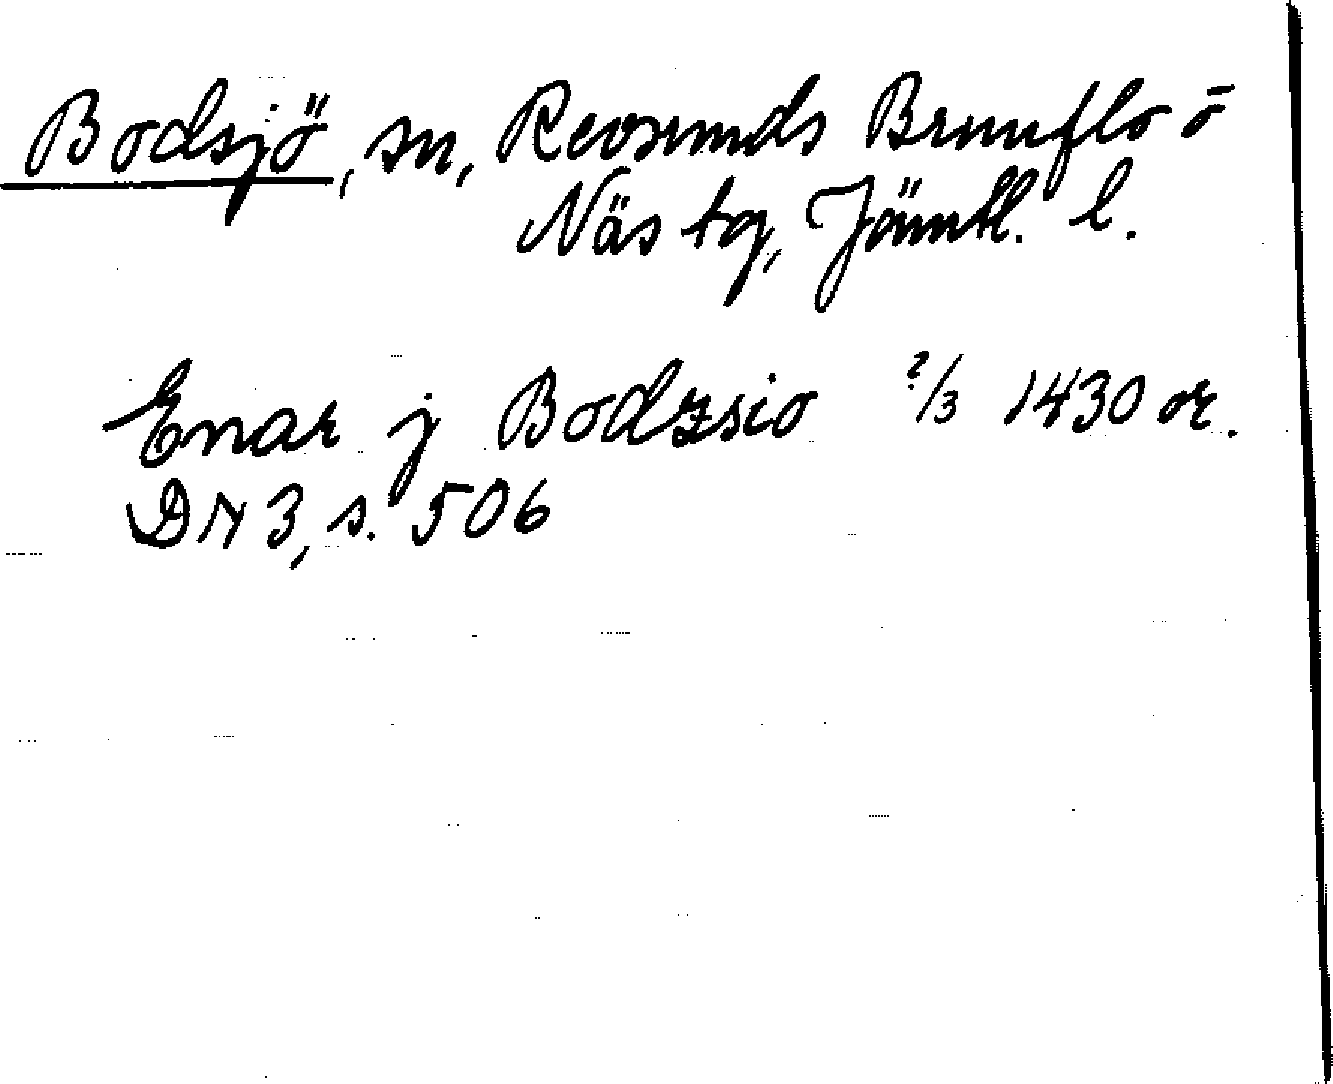 Bodsjö, sn, Revsunds Brunflo o
Näs tg, Jämtl. l.
Enar j Bodzsio ?/3 1430 or.
DN 3, s. 506